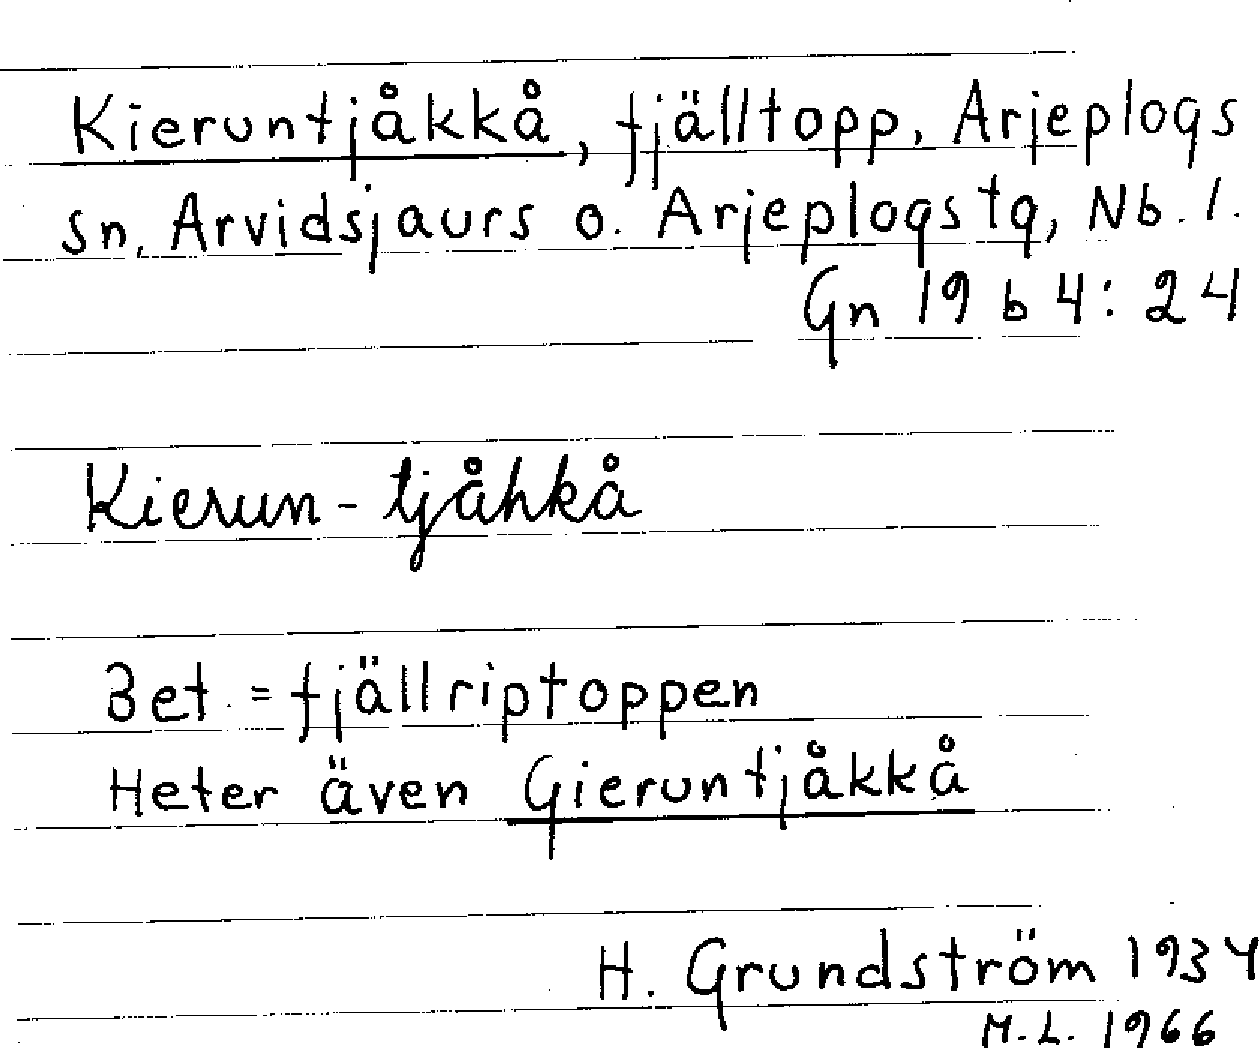 Kieruntjåkkå, fjälltopp, Arjeplogs
sn, Arvidsjaurs o. Arjeplogs tg, Nb. l.
Gn 19 b 4: 24
Kierun - tjåhkå
Bet. = fjällriptoppen
Heter även Gieruntjåkkå
H. Grundström 1934
M. L. 1966